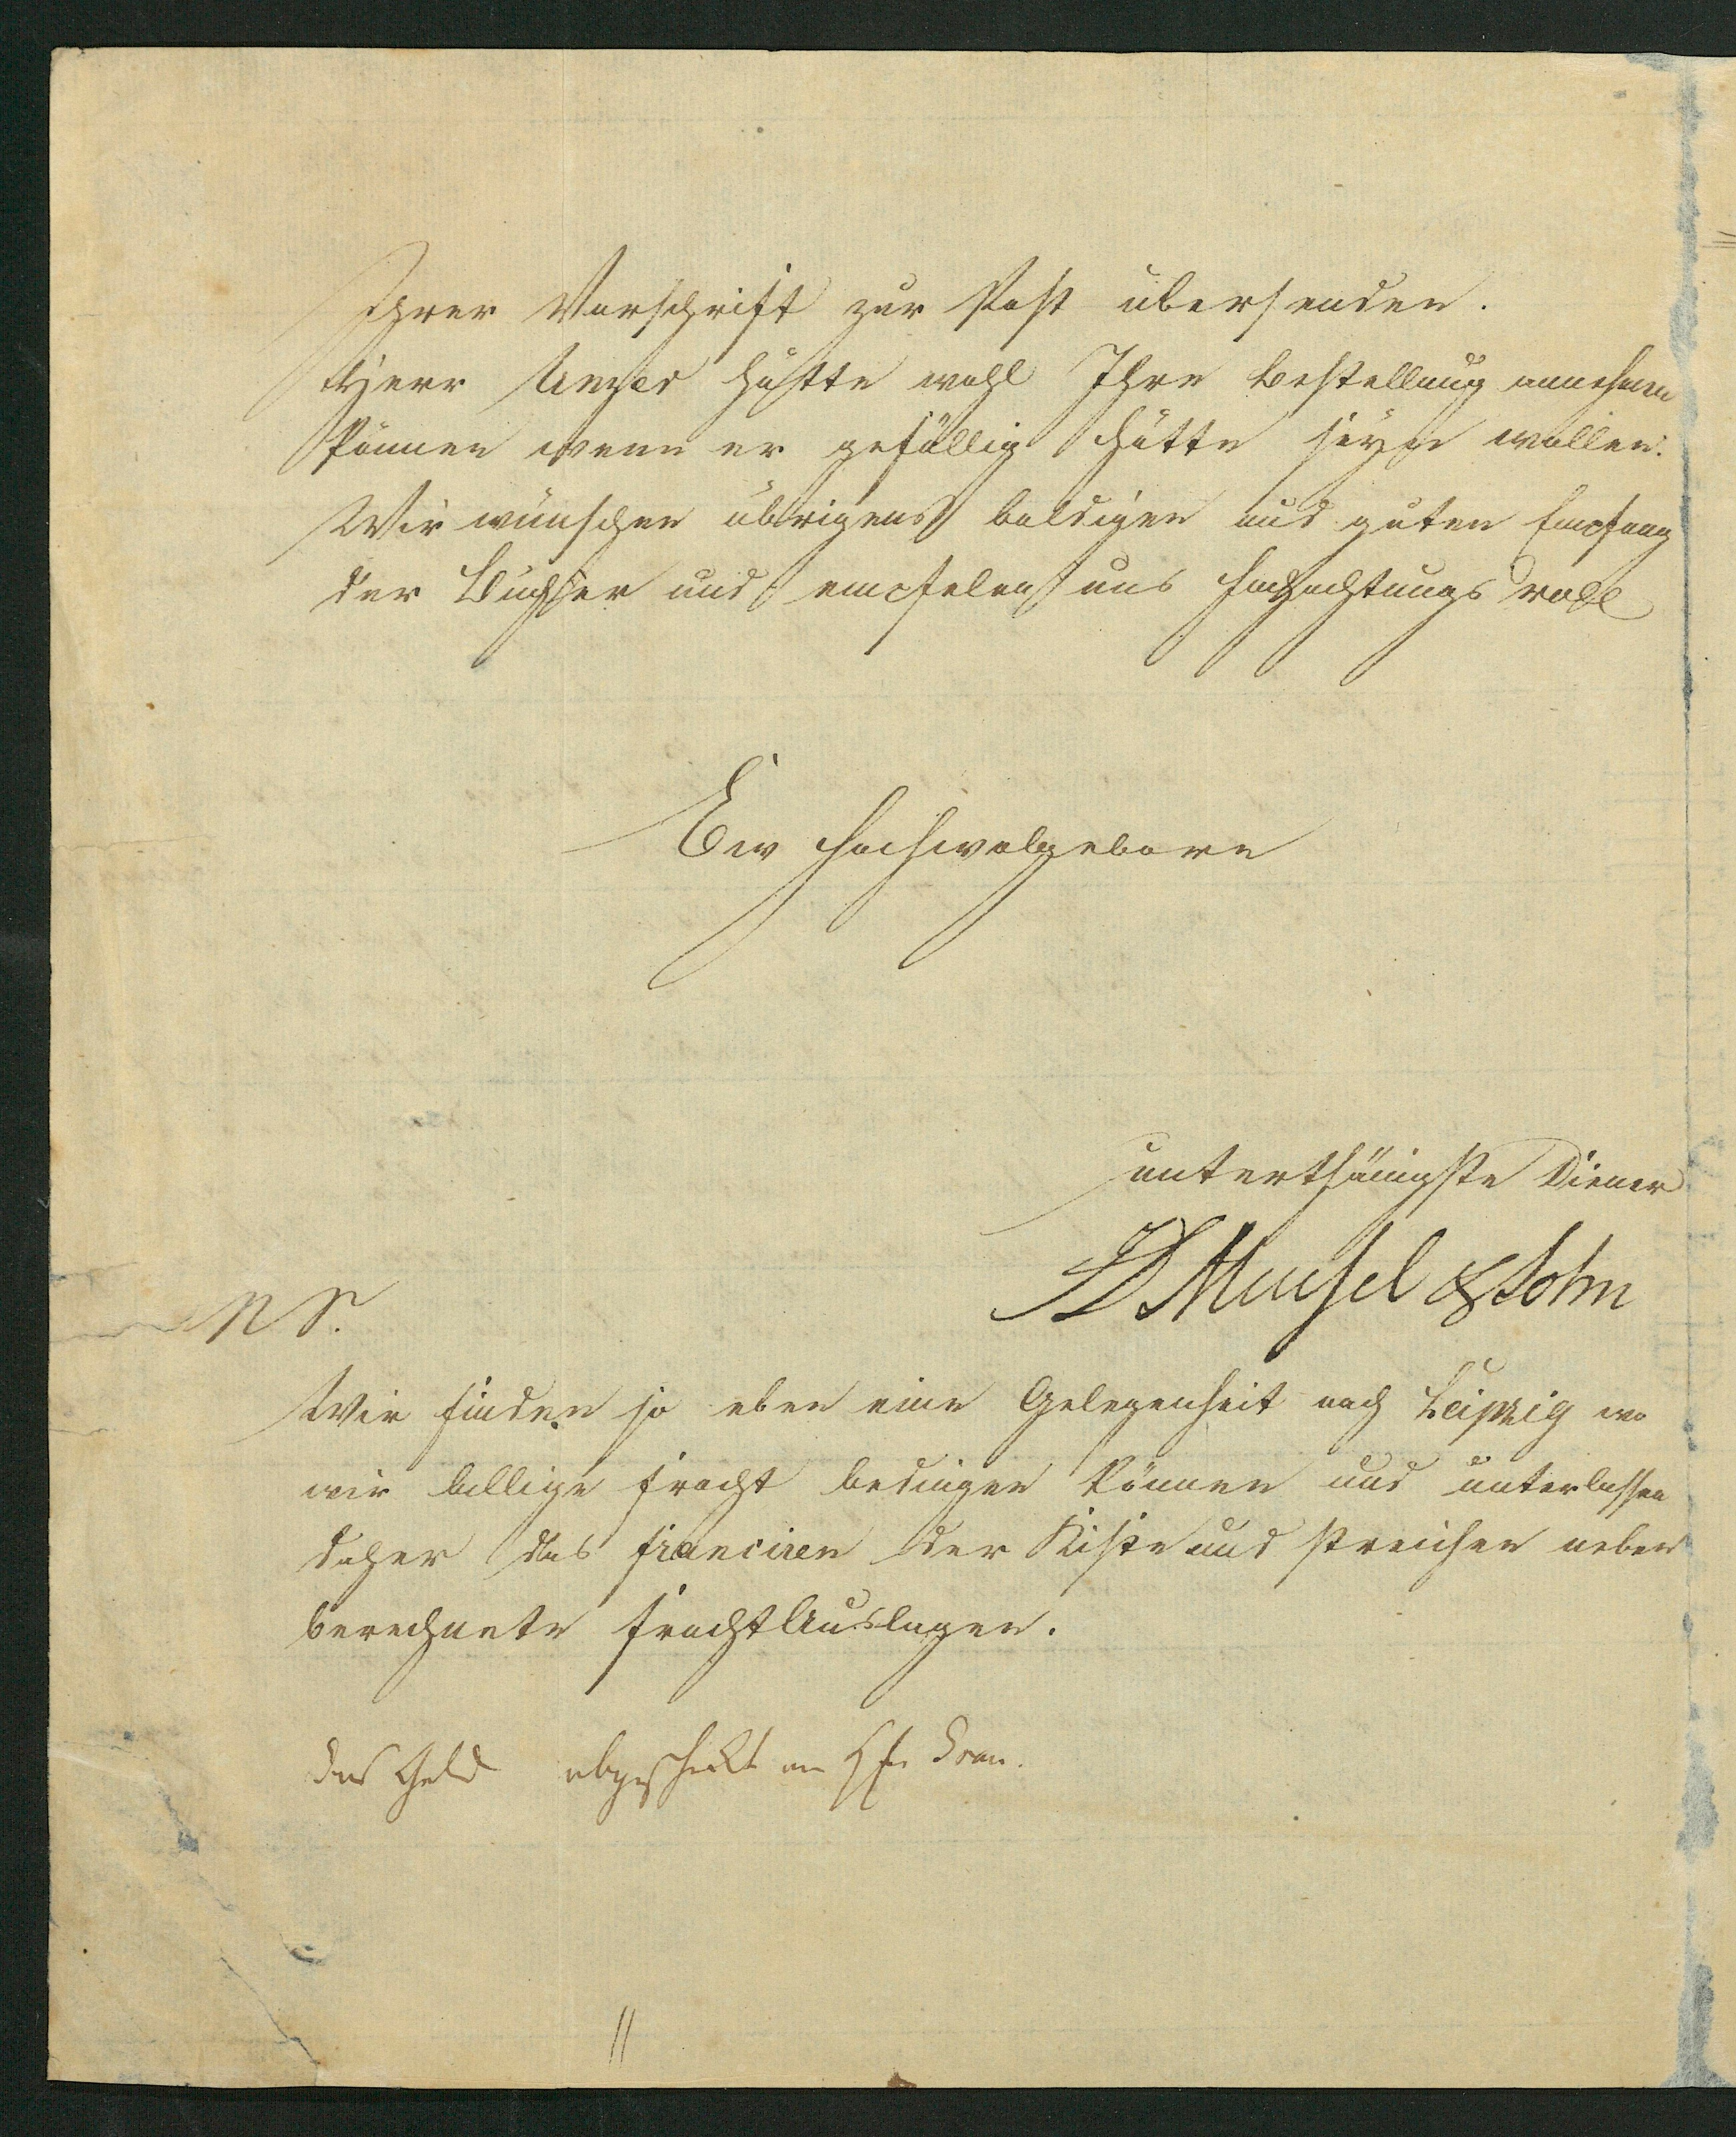 Ihrer Vorschrift zur Post übersenden.
Herr Unzer hätte wohl Ihre Bestellung annehmen
können wenn er gefällig hätte seyn wollen.
Wir wünschen übrigens baldigen und guten Empfang
der Bücher und empfelen uns hochachtungsvoll
Ew Hochwolgeborn
unterthänigste Diener
JD Meusel & Sohn
NS.
Wir finden so eben eine Gelegenheit nach Leipzig wo
wir billige Fracht bedingen können und unterlassen
daher das franciren der Kiste und streichen neben
berechnete FrachtAuslagen.
das Geld abgeschickt an